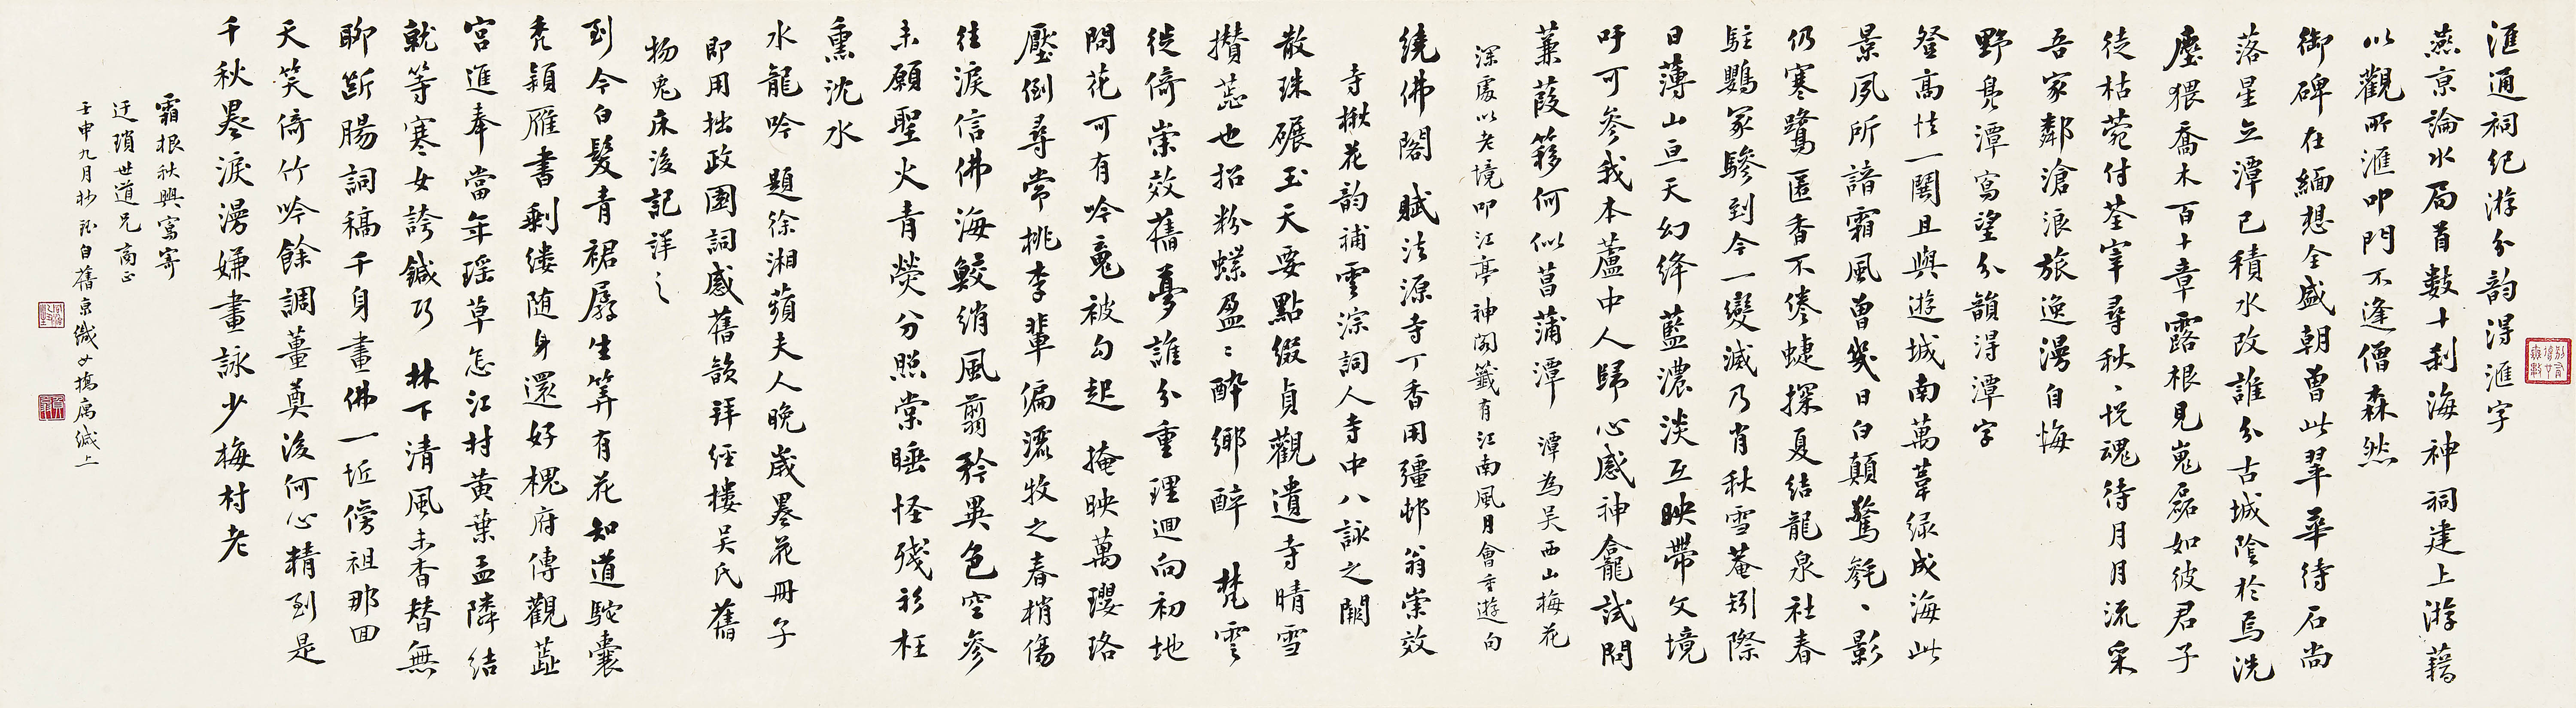 滙通祠紀游分韵得滙字
燕京論水局首數十剎海神祠建上游藉
以觀所滙叩門不逢僧森然
御碑在緬想全盛朝曾此翠華待石尚
落星立潭已積水改誰分古城陰於焉洗
塵猥喬木百十章露根見嵬磊如彼君子
徒枯菀付荃宰尋秋秋悅魂待月月流采
吾家鄰滄浪旅逸漫自悔
野鳧潭寫望分韻得潭字
登高怯一闉且與遊城南萬葦綠成海此
景夙所諳霜風曾幾日白顛驚毿毿影
仍寒鷺匿香不倦蜨探夏結龍泉社春
駐鸚冢驂到今一變滅乃肖秋雪菴矧際
日薄山亘天幻絳藍濃淡互映帶文境
吁可參我本蘆中人歸心感神龕試問
蒹葭簃何似菖蒲潭 潭為吴西山梅花
深處以老境叩江亭神閣籤有江南風月會重遊句
繞佛閣 賦法源寺丁香用彊邨翁崇效
寺楸花韵補雲淙詞人寺中八詠之闕
散珠碾玉天要點綴貞觀遺寺晴雪
攢蕊也招粉蝶盈盈醉鄉醉 梵雲
徙倚崇效舊夢誰分重理迴向初地
問花可有吟魂被勾起 掩映萬瓔珞
壓倒尋常桃李輩偏灑牧之春梢傷
往淚信佛海鮫綃風翦矜異色空參
未願聖火青熒分照棠睡怪殘衫枉
熏沈水
水龍吟 題徐湘蘋夫人晚歲墨花冊子
即用拙政園詞感舊韻拜經樓吴氏舊
物兔床後記詳之
到今白髮青裙孱生筭有花知道駝囊
禿穎雁書剩縷随身還好槐府傳觀蕋
宫進奉當年瑶草怎江村黄葉孟隣結
就等寒女誇鍼巧 林下清風未杳替無
聊斷腸詞稿千身畫佛一坵傍祖那回
天笑倚竹吟餘調薑奠後何心精到是
千秋墨淚漫嫌畫詠少梅村老
霜根秋興寫寄
迂瑣世道兄商正
壬申九月抄